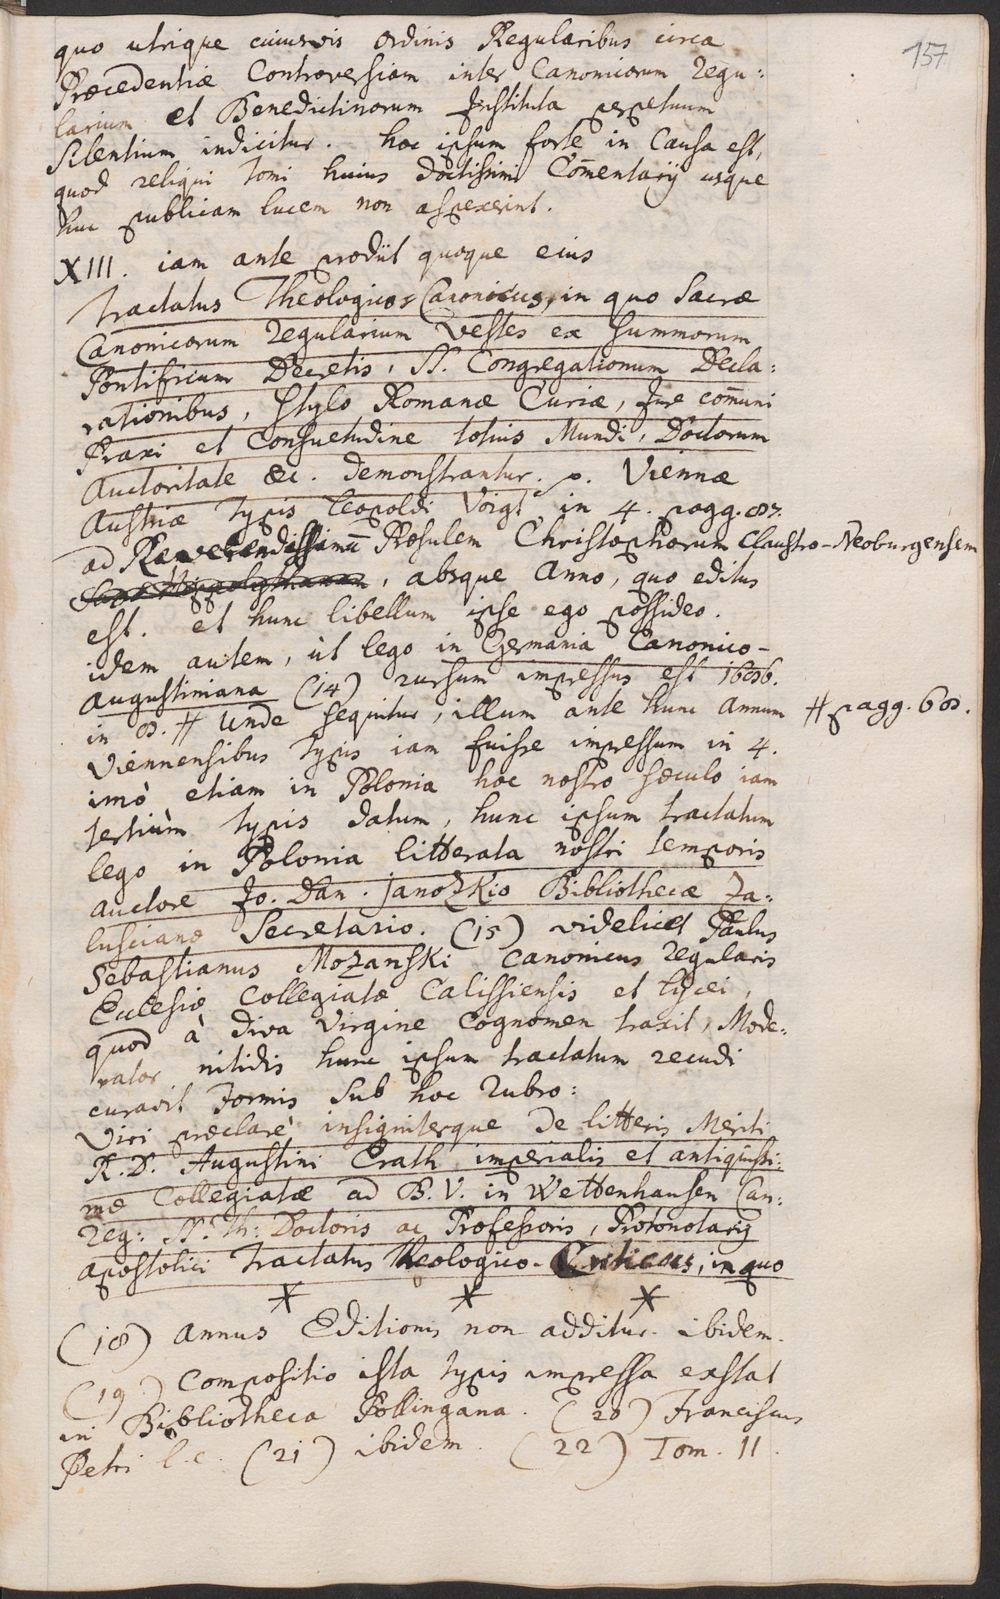 157
quo utrique cuiusvis Ordinis Regularibus circa
Præcedentiæ Controversiam inter Canonicorum Regu:
larium et Benedictinorum Instituta perpetuum
silentium indicitur. hoc ipsum forte in Causa est,
quod reliqui tomi huius doctissimi Com̄entarij usque
huc publicam lucem non aspexerint.
XIII. iam ante prodiit quoque eius
Tractatus Theologicus Canonicus, in quo Sacræ
Canonicorum Regularium Vestes ex Summorum
Pontificum Decretis, SS. Congregationum Decla:
rationibus, Stylo Romanæ Curiæ, Jure com̄uni
Praxi et Consuetudine totius Mundi, Doctorum
Auctoritate &c. demonstrantur. p. Viennæ
Austriæ typis Leopoldi Voigt in 4. pagg. 87.
ad Reverendissimū Præsulem Christophorum Claustro-Neoburgensem
, absque Anno, quo editus
est. et hunc libellum ipse ego possideo.
idem autem, ut lego in Germania Canonico-
Augustiniana (14) rursum impressus est 1696.
in 8. # Unde sequitur, illum ante hunc Annum # pagg. 68.
Viennensibus typis iam fuisse impressum in 4.
imò etiam in Polonia hoc nostro sæculo iam
tertiùm typis datum, hunc ipsum tractatum
lego in Polonia litterata nostri temporis
auctore Jo. Dan. Janozkio Bibliothecæ Za:
luscianæ Secretario. (15) videlicet Paulus
Sebastianus Mozanski Canonicus Regularis
Ecclesiæ Collegiatæ Calissiensis et Lycei,
quod à diva Virgine Cognomen traxit, Mode:
rator nitidis hunc ipsum tractatum recudi
curavit Formis Sub hoc Rubro:
Viri præclarè insigniterque de litteris Meriti
R. D. Augustini Erath imperialis et antiquissi:
mæ Collegiatæ ad B. V. in Wettenhausen Can:
Reg: SS. Th: Doctoris ac Professoris, Protonotarij
Apostolici Tractatus Theologico-Criticus, in quo
* * *
(18) Annus Editionis non additur ibidem.
(19) Compositio ista typis impressa exstat
in Bibliotheca Pollingana. (20) Franciscus
Petri l. c. (21) ibidem. (22) Tom. II.